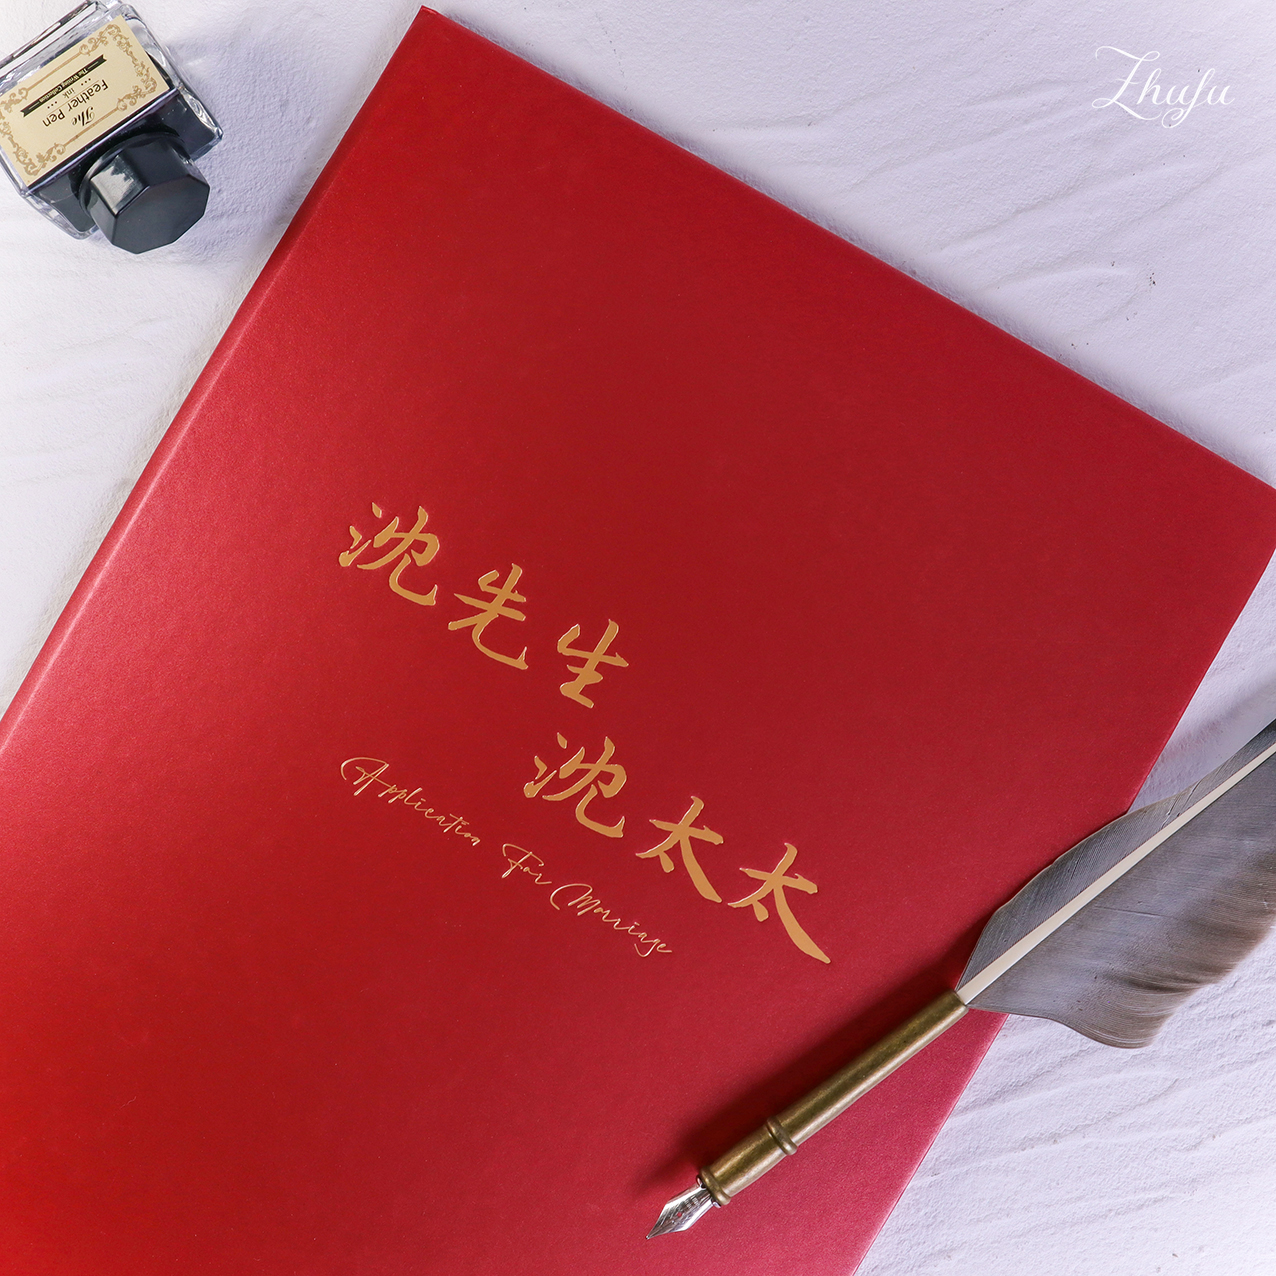 Zhufu
The
Feather Pen
ink
The Write Collection
沈先生
沈太太
Application For Marriage